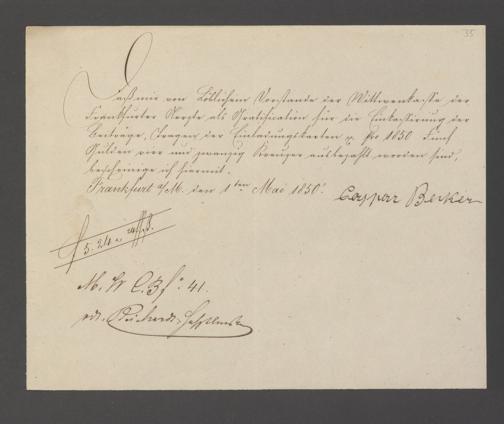 35
Daß mir von Löblichem Vorstande der Wittwenkasse der
Frankfurter Aerzte als Gratification für die Einkassirung der
Beiträge, Tragen der Einladungskarten p. pro 1850 Fünf
Gulden vier und zwanzig Kreuzer ausbezahlt worden sind,
bescheinige ich hiermit.
Frankfurt a/M. den 1ten Mai 1850.
Caspar Becker
f 5. 24
M. W C. B f° 41.